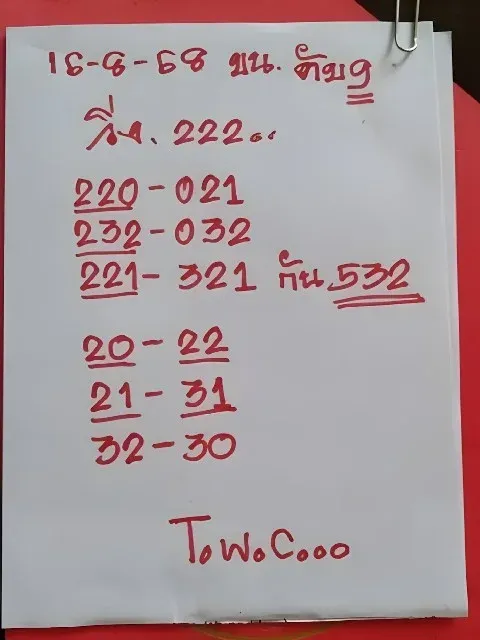 16-8-68 บน. ดับ9
วิ่ง. 222..
220-021
232-032
221-321 กัน 532
20-22
21-31
32-30
T.W.C...